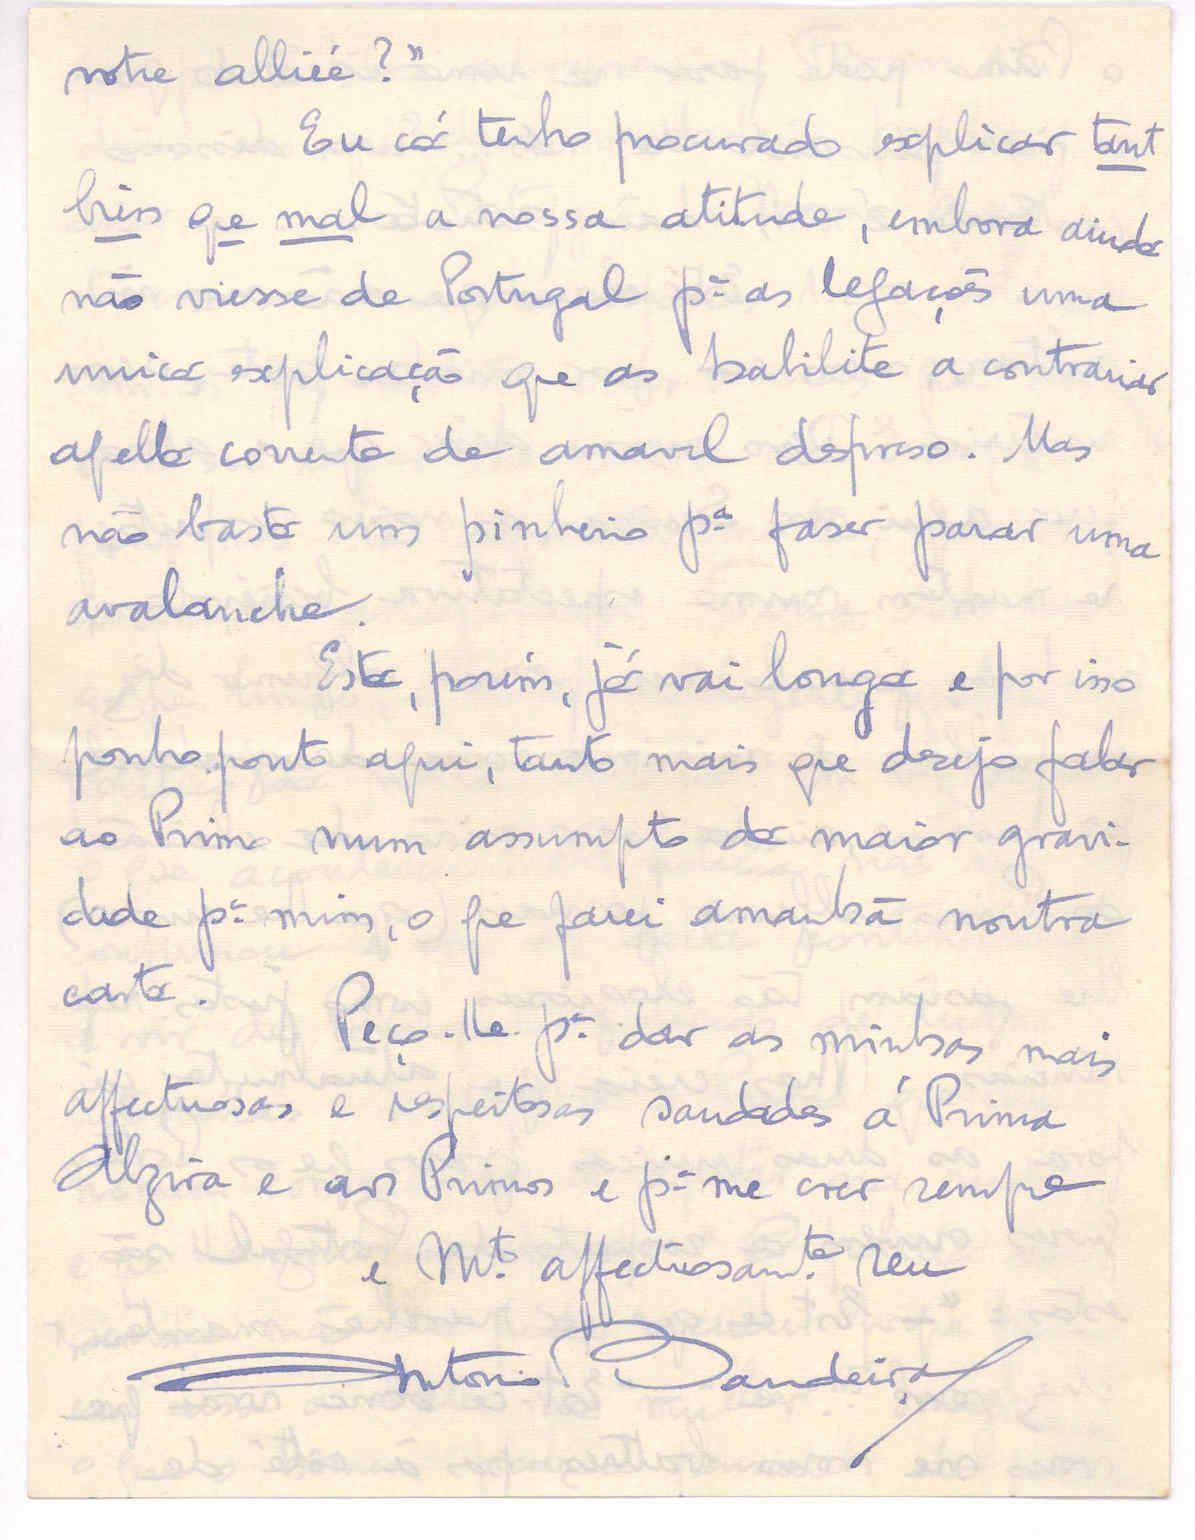 votre alliée ?"
Eu cá tenho procurado explicar tant
bien que mal a nossa atitude, embora ainda
não viesse de Portugal pª as legações uma
unica explicação que as habilite a contrariar
aquella corrente de amavel despreso. Mas
não basta um pinheiro pª faser parar uma
avalanche.
Esta, porém, já vai longa e por isso
ponho ponto aqui, tanto mais que desejo falar
ao Primo num assumpto da maior gravi-
dade pª mim, o que farei amanhã noutra
carta.
Peço-lhe pª dar as minhas mais
affectuosas e respeitosas saudades á Prima
Alzira e aos Primos e pª me crer sempre
e Mto affectuosamte seu
Antonio Bandeira